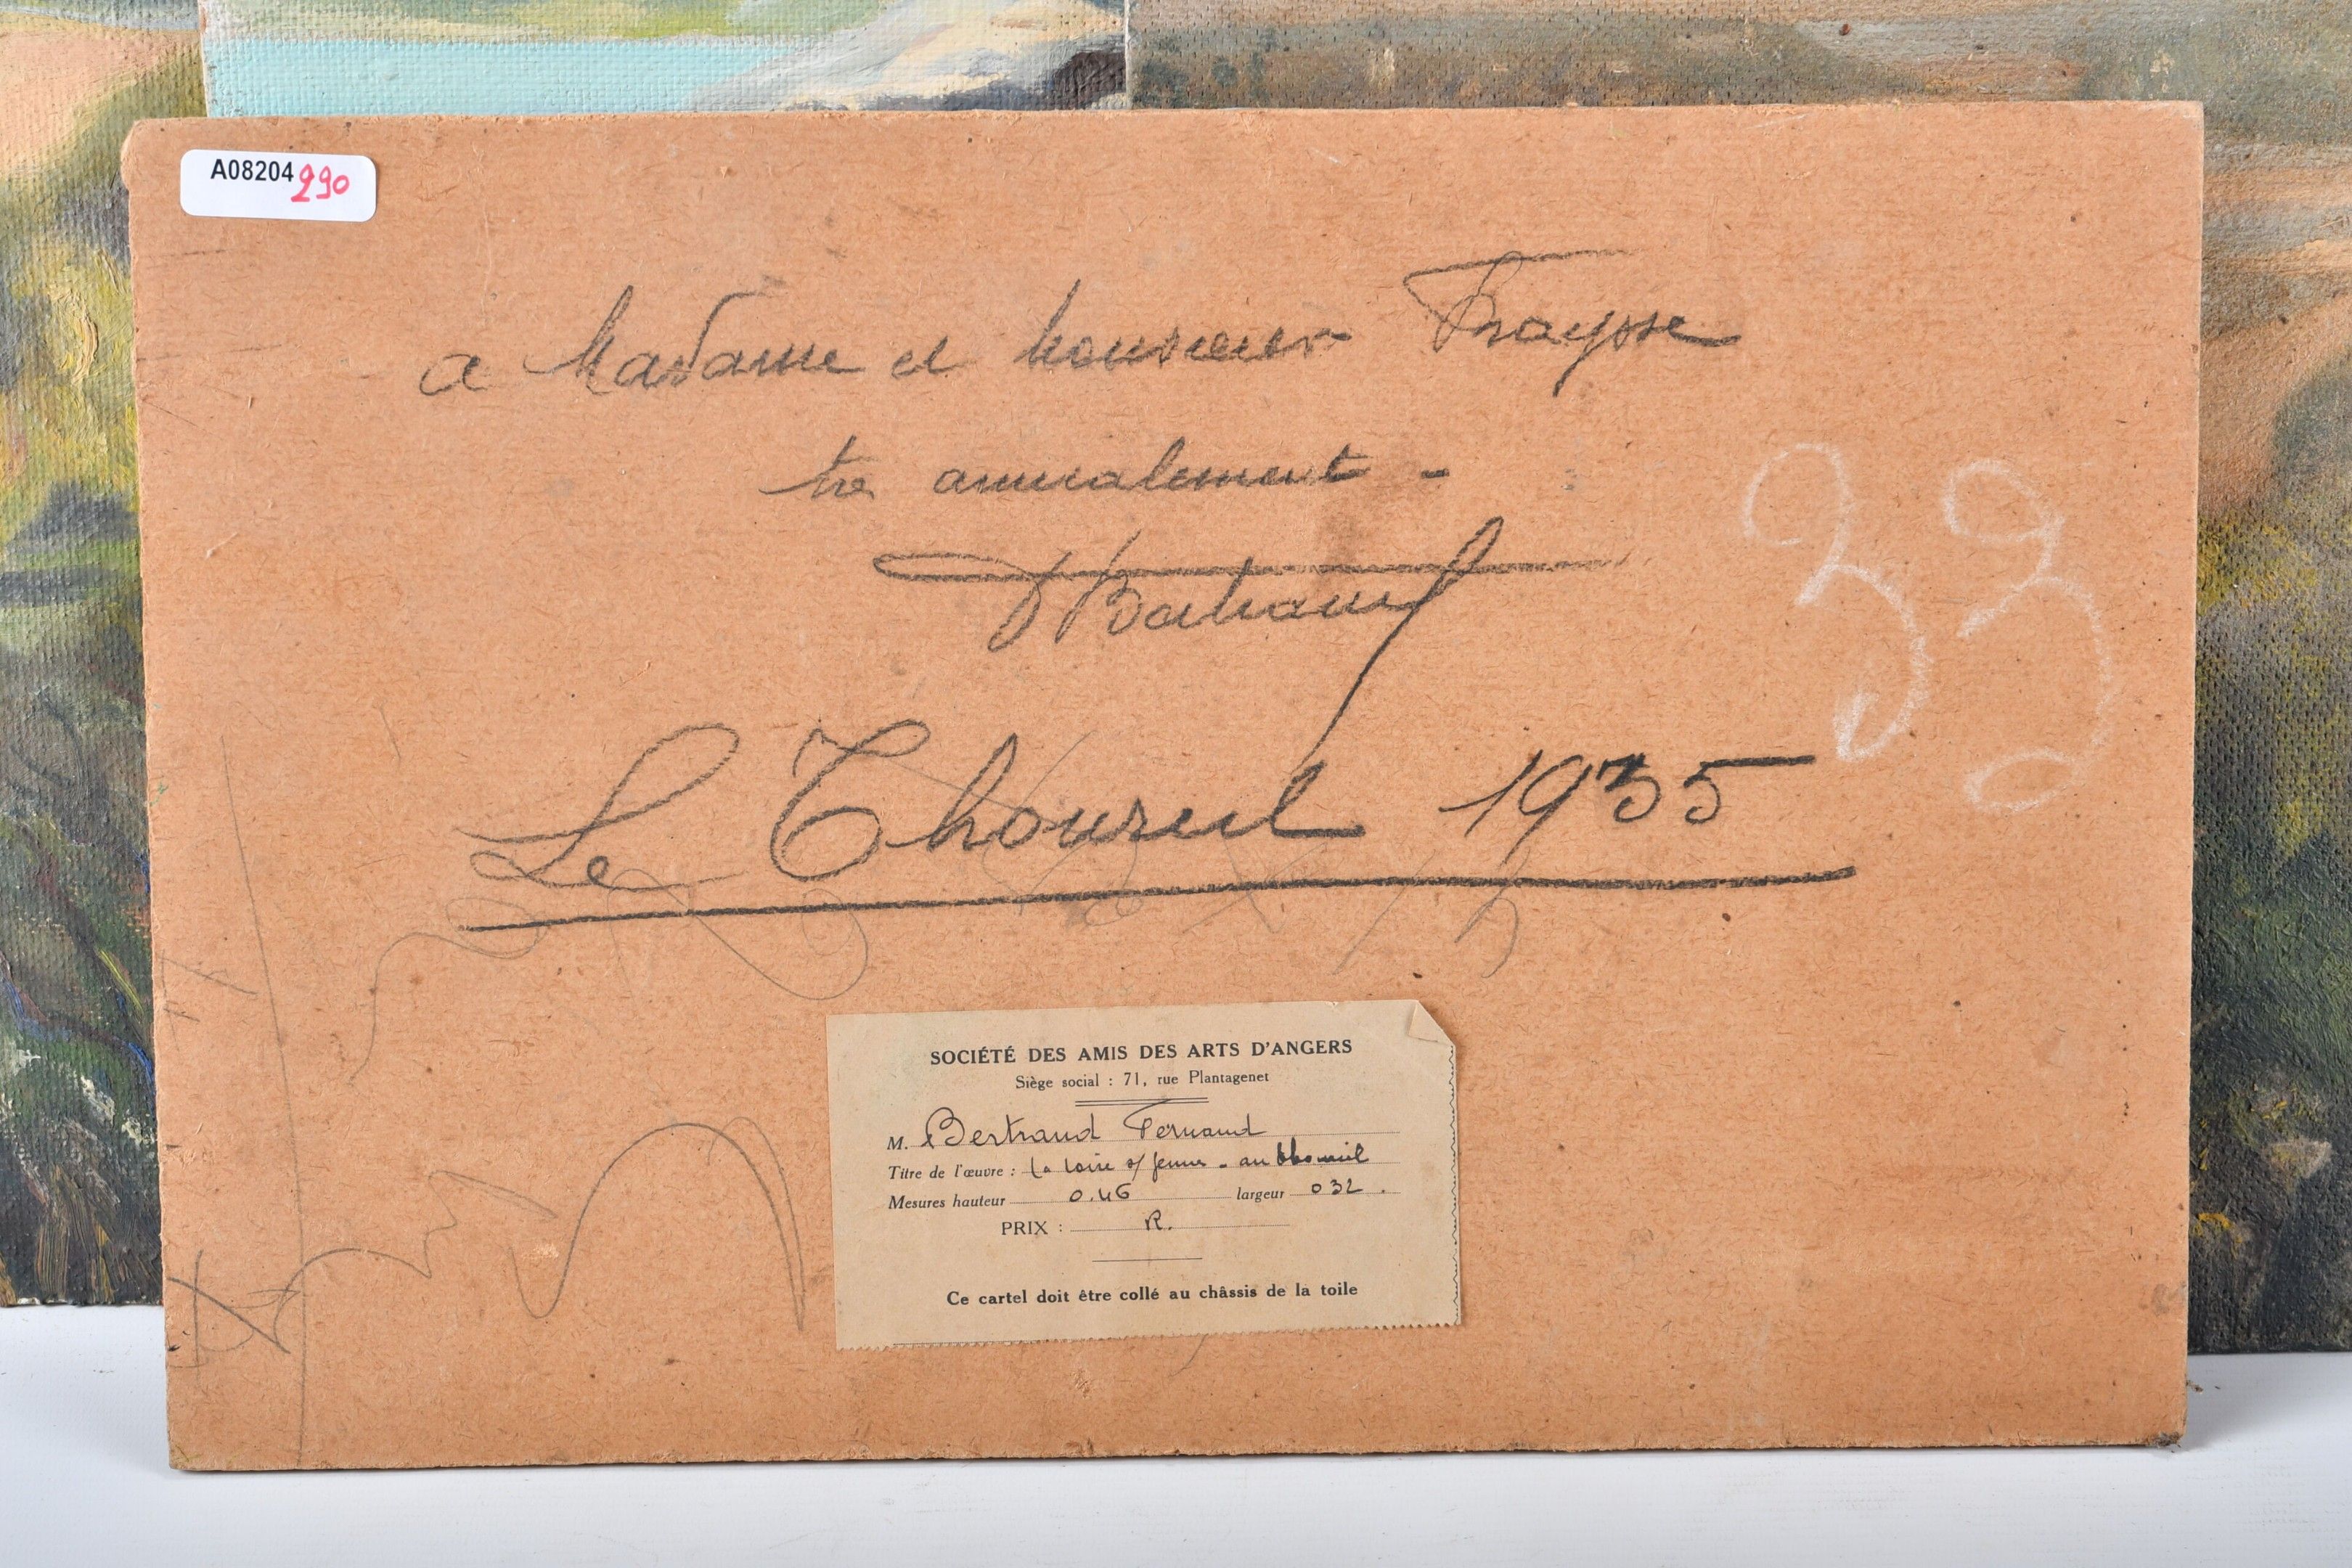 A08204 290
a Madame et Monsieur Fraysse
tres amicalement -
FBertrand
33
Le Thoureil 1935
SOCIÉTÉ DES AMIS DES ARTS D'ANGERS
Siège social : 71, rue Plantagenet
M. Bertrand Fernand
Titre de l'œuvre : La Loire - au thoureil
Mesures hauteur 0.46 largeur 032.
PRIX : R.
Ce cartel doit être collé au châssis de la toile